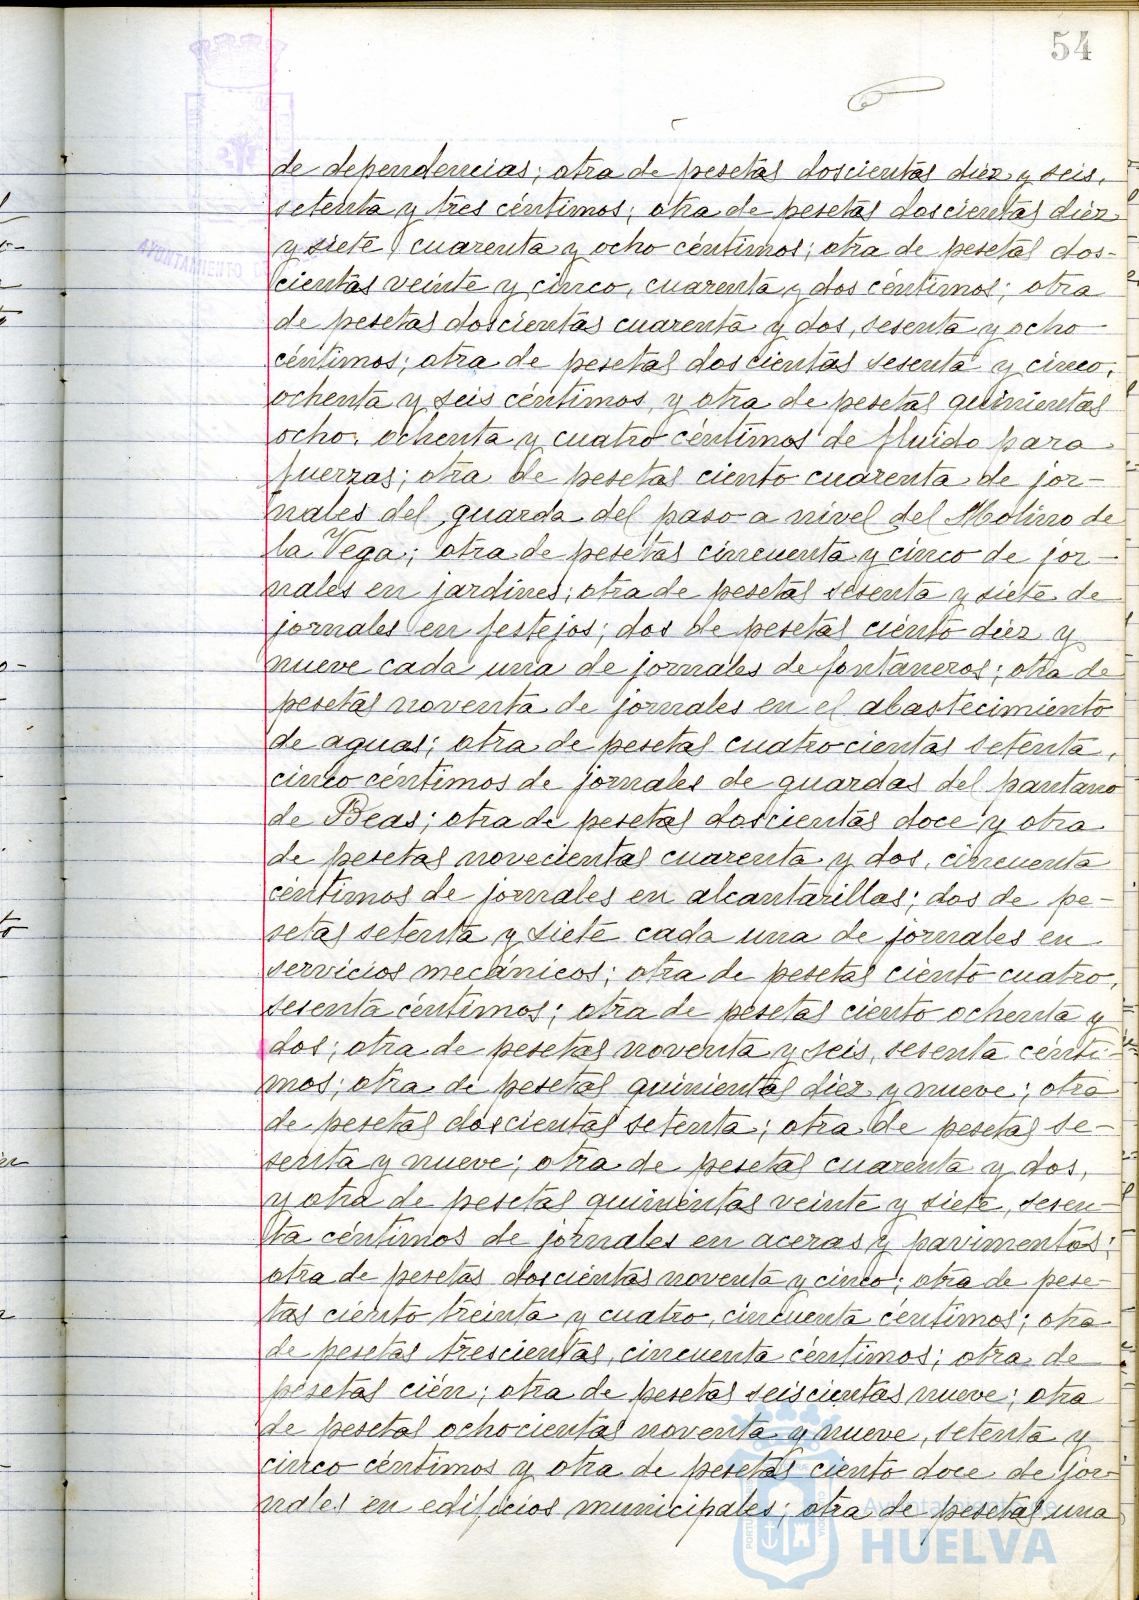 54
de dependencias; otra de pesetas doscientas diez y seis,
setenta y tres céntimos; otra de pesetas doscientas diez
y siete, cuarenta y ocho céntimos; otra de pesetas dos-
cientas veinte y cinco, cuarenta y dos céntimos; otra
de pesetas doscientas cuarenta y dos, sesenta y ocho
céntimos; otra de pesetas doscientas sesenta y cinco,
ochenta y seis céntimos, y otra de pesetas quinientas
ocho, ochenta y cuatro céntimos de fluido para
fuerzas; otra de pesetas ciento cuarenta de jor-
nales del guarda del paso a nivel del Molino de
la Vega; otra de pesetas cincuenta y cinco de jor-
nales en jardines; otra de pesetas sesenta y siete de
jornales en festejos; dos de pesetas ciento diez y
nueve cada una de jornales de fontaneros; otra de
pesetas noventa de jornales en el abastecimiento
de aguas; otra de pesetas cuatrocientas setenta,
cinco céntimos de jornales de guardas del pantano
de Beas; otra de pesetas doscientas doce y otra
de pesetas novecientas cuarenta y dos, cincuenta
céntimos de jornales en alcantarillas; dos de pe-
setas setenta y siete cada una de jornales en
servicios mecánicos; otra de pesetas ciento cuatro,
sesenta céntimos; otra de pesetas ciento ochenta y
dos; otra de pesetas noventa y seis, sesenta cénti-
mos; otra de pesetas quinientas diez y nueve; otra
de pesetas doscientas setenta; otra de pesetas se-
senta y nueve; otra de pesetas cuarenta y dos,
y otra de pesetas quinientas veinte y siete, sesen-
ta céntimos de jornales en aceras y pavimentos;
otra de pesetas doscientas noventa y cinco; otra de pese-
tas ciento treinta y cuatro, cincuenta céntimos; otra
de pesetas trescientas, cincuenta céntimos; otra de
pesetas cién; otra de pesetas seiscientas nueve; otra
de pesetas ochocientas noventa y nueve, setenta y
cinco céntimos y otra de pesetas ciento doce de jor-
nales en edificios municipales; otra de pesetas una
Ayuntamiento de
HUELVA